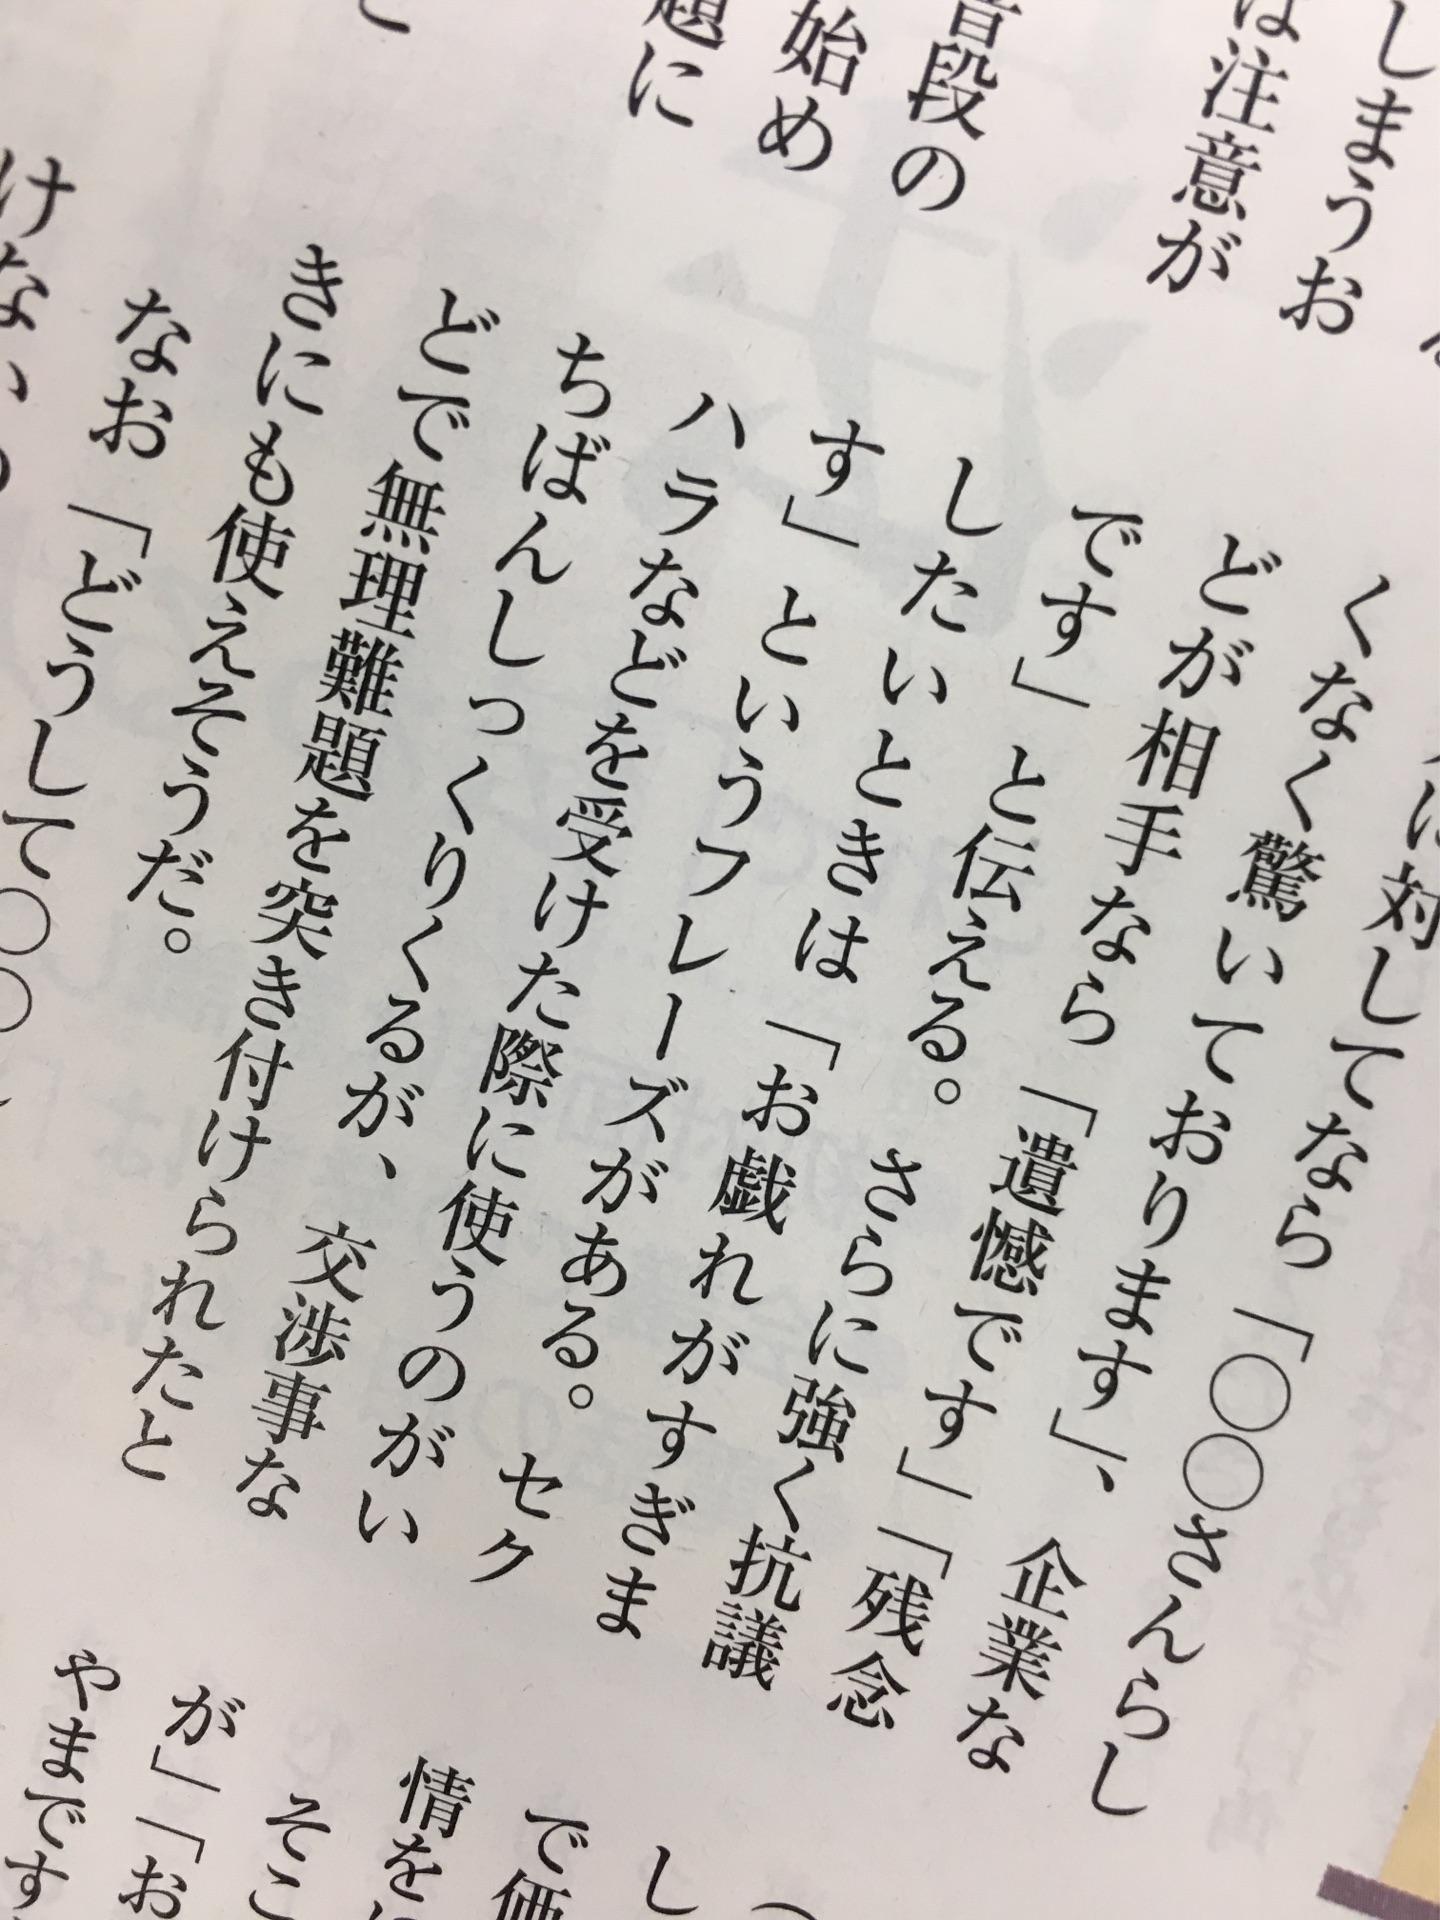 しまうお
は注意が
普段の
始め
題に
に対してなら「〇〇さんらし
くなく驚いております」、企業な
どが相手なら「遺憾です」「残念
です」と伝える。さらに強く抗議
したいときは「お戯れがすぎま
す」というフレーズがある。セク
ハラなどを受けた際に使うのがい
ちばんしっくりくるが、交渉事な
どで無理難題を突き付けられたと
きにも使えそうだ。
なお「どうして〇〇
けない
し
で価
情を
そこ
が」「お
やまです